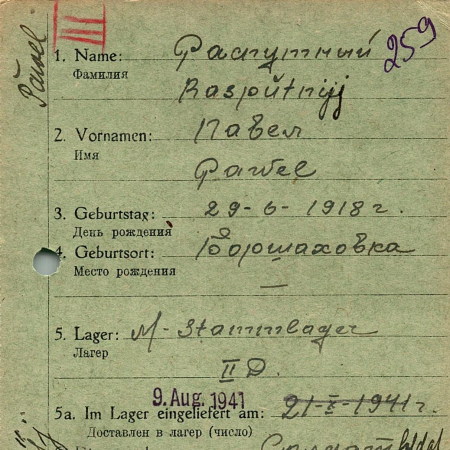 Pawel
III
259
1. Name: Распутный
Фамилия
Rasputnijj
2. Vornamen: Павел
Имя
Pawel
3. Geburtstag: 29-6-1918 г.
День рождения
4. Geburtsort: Боршаховка
Место рождения
5. Lager: M-Stammlager
Лагер
II D.
9. Aug. 1941
5a. Im Lager eingeliefert am: 21-X-1941 г.
Доставлен в лагер (число)